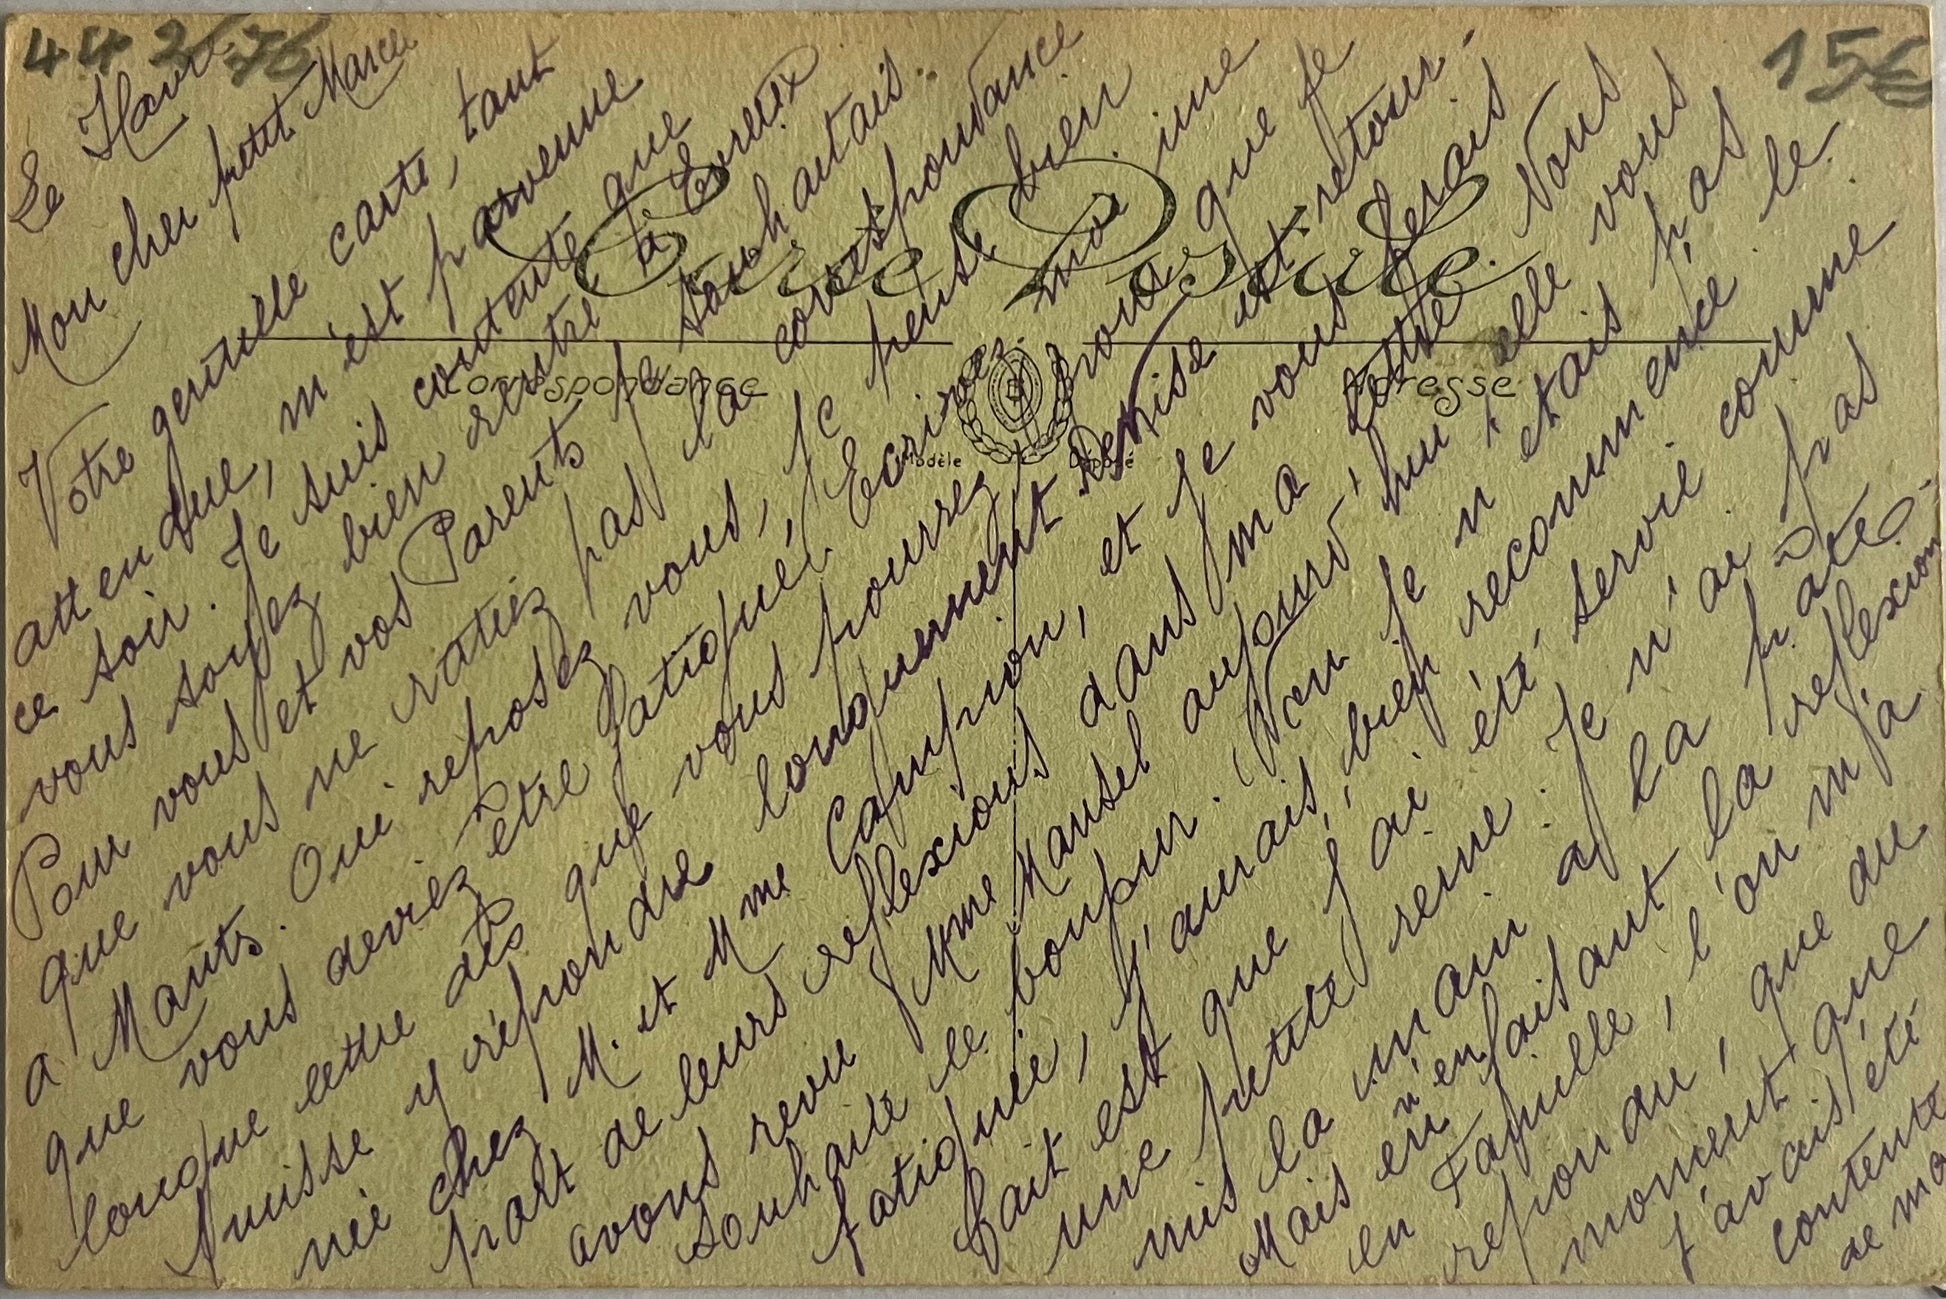 44 276
15€
Carte Postale
Correspondance
Adresse
Modèle
Déposé
E
Le Havre
Mon cher petit Marcel
Votre gentille carte, tant
attendue, m'est parvenue
ce soir. Je suis contente que
vous soyez bien rentré à Evreux
Pour vous et vos Parents je souhaitais
que vous ne ratiez pas la correspondance
à Mants. Oui reposez vous, je pense bien
que vous deviez être fatigué. Ecrivez moi une
longue lettre dès que vous pourrez pour que je
puisse y répondre longuement Remise et retour
née chez M. et Mme Campion, et je vous ferais
part de leurs reflexions dans ma lettre. Nous
avons revu Mme Mansel aujourd'hui elle vous
souhaite le bonjour. Non je n'étais pas
fatiguée, j'aurais bien recommencé le
fait est que j'ai été servie comme
une petite reine. Je n'ai pas
mis la main a la pâte.
Mais en n'en faisant la reflexion
en Famille, l'on m'a
repondu, que du
moment que
j'avais été
contente
de ma